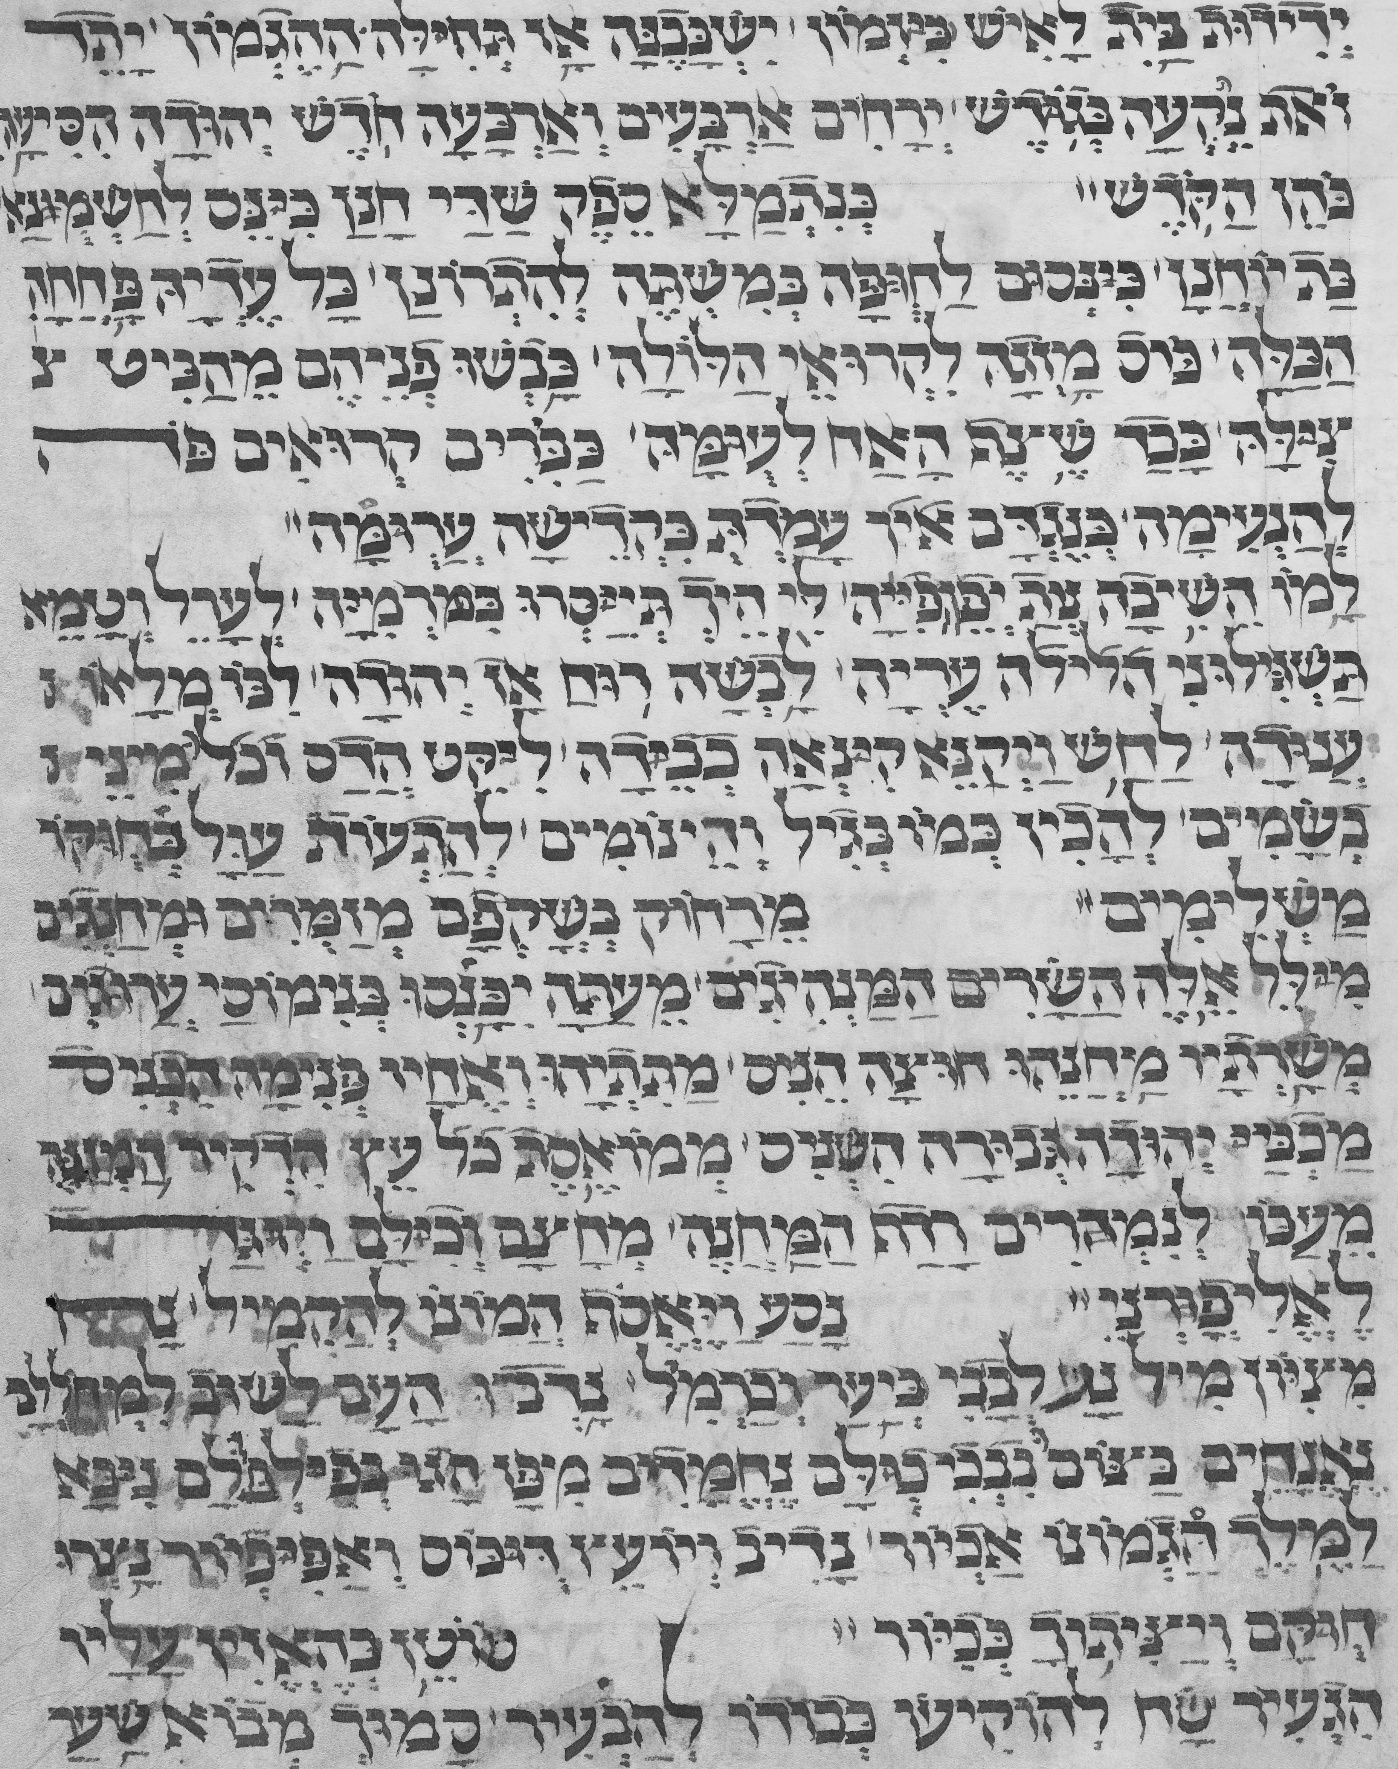 ידידות בת לאיש בזמון ישכבנה אז בתחילה ההגמון יהד
זאת נתקעה בגודש ירחים ארבעים וארבעה חדש יהודה הכיעו
כהן הקדש בנתמלא ספק שדי חנן כונס לחשמונאי
בת יוחנן בונכסום לחופה במשתה להתרונן כל עדיה פחתה
הכלה כוס מזגה לקרואי הלולה כבשו פניהם מהביט צ
צולה כבד שצף האח לעומה כברים קרואים פה
להנעימה כנגדם איך עמדת כקדישה ערומה
למו השיבה צת יפהפיה לי היך תימסרו במרמיה לערל וטמא
בשגלוני הלילה עריה לבשה רוח אז יהודה לבו מלאו
ענודה לחש ויקנא קנאה כבידה ליקט הדס וכל מיני
בשמים להכין כמו בגיל והינומים להתעות עול בחוקו
משלימים מרחוק בשקפם מזמרים ומחנגים
מולל אלה השרים המנהיגים מעתה יכנסו בנימוסי ערוגים
משרתיו מחנהו חוצה הניס מתתיהו ואחיו פנימה הכניס
מכבי יהודה גבורה השניס ממואסת כל עץ הדקיר
מעכו לנמהרים רדת המחנה מחצם וכילם
לאליפורני נסע ויאסף המונו להקמיל
מציון מיל נע לבבי כיער וכרמל נדברו העם לשוב
נאנחים בצום ובבכי כולם נחמדים מבן ניבא
למלך המונו אביור נדיב ויועץ דובוס ואפיפיור נצרו
חוקם בביור סוטן בהאזין עליו
הנעיר שח להוקיעו בכודו להבעיר סמוך מבוא שער